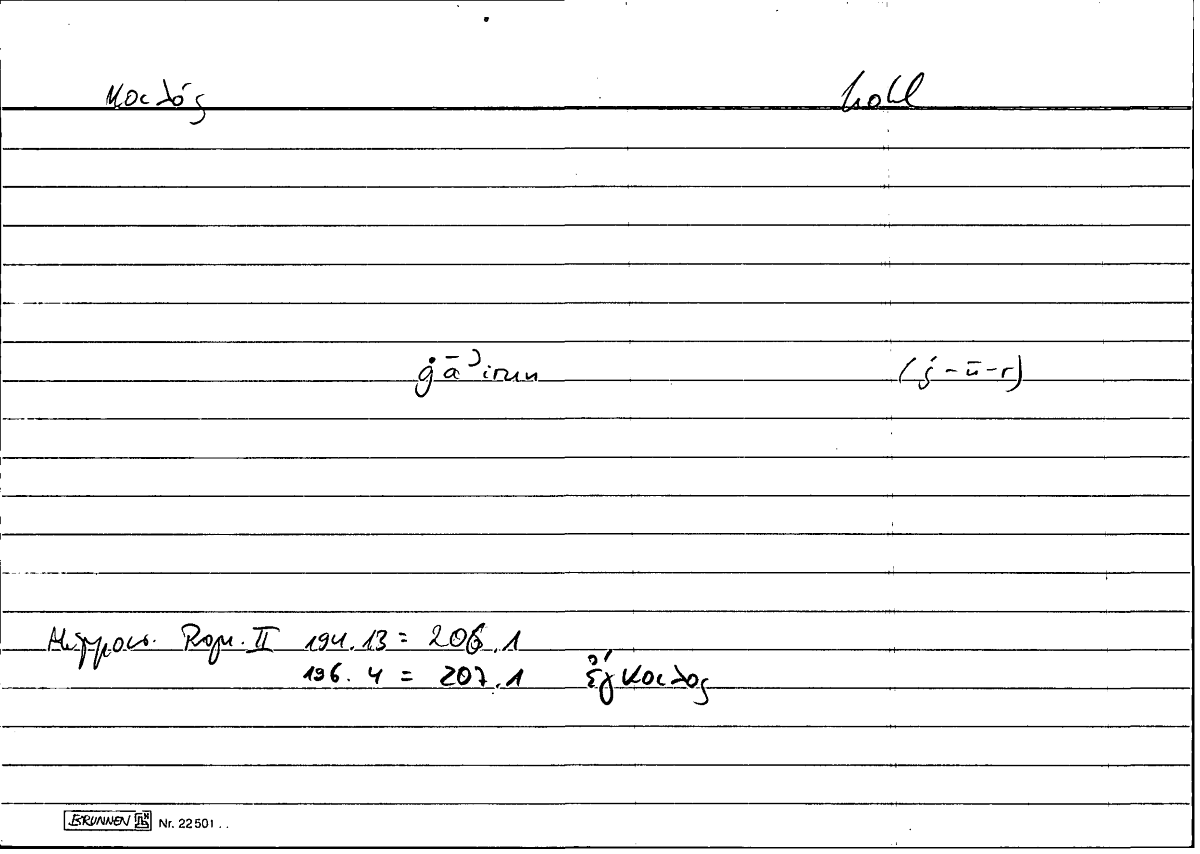 κοιλός hohl
ġāʾirun (ġ-ū-r)
Hippocr. Progn. II 194.13 = 206.1
196.4 = 207.1 ἔγκοιλος
BRUNNEN Nr. 22501